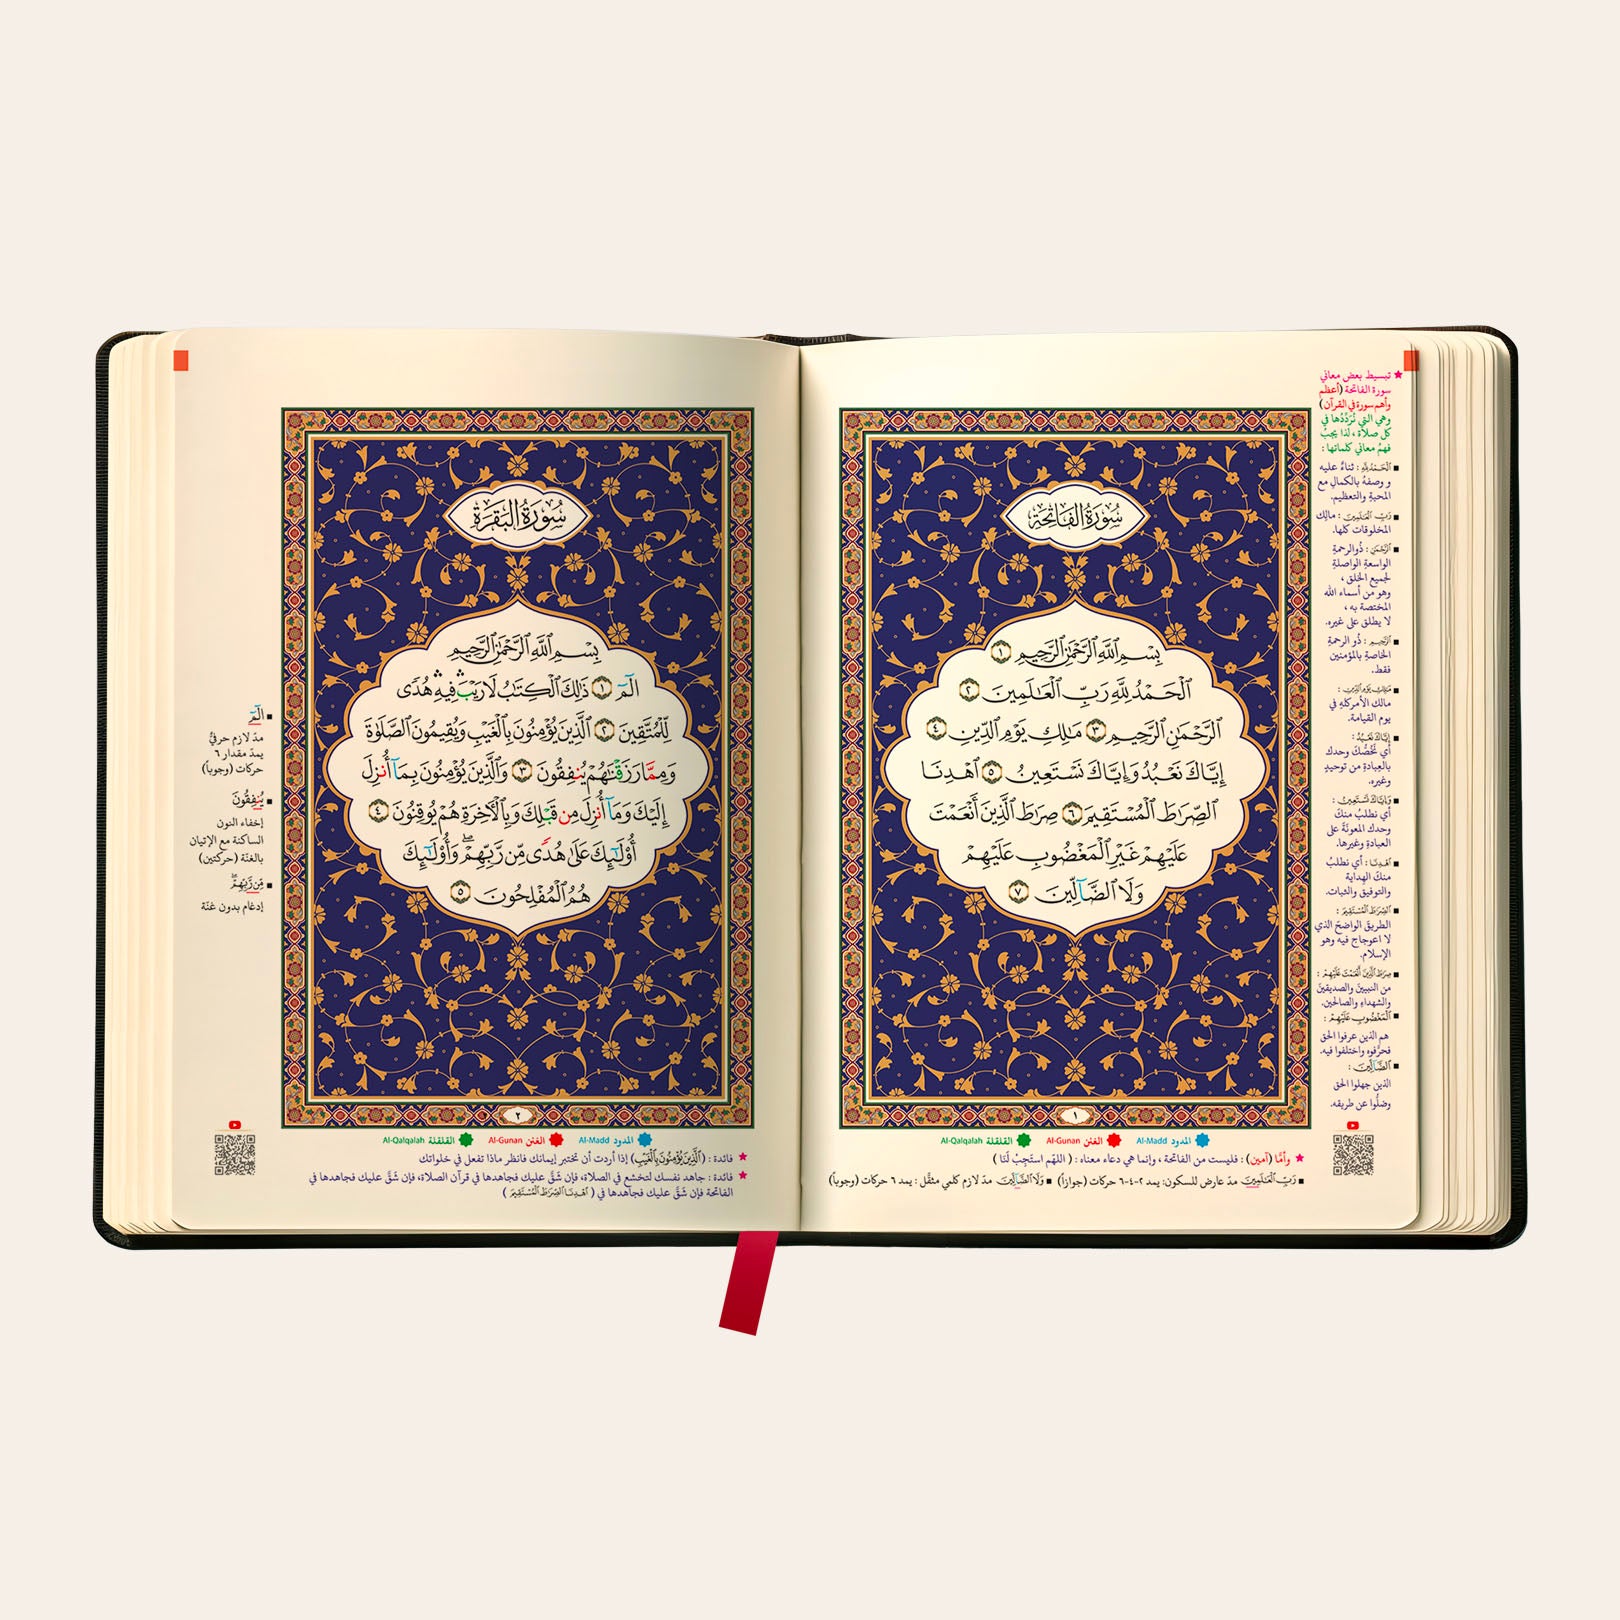 سُورَةُ الفَاتِحَةِ
بِسْمِ ٱللَّهِ ٱلرَّحْمَٰنِ ٱلرَّحِيمِ ١
ٱلْحَمْدُ لِلَّهِ رَبِّ ٱلْعَٰلَمِينَ ٢
ٱلرَّحْمَٰنِ ٱلرَّحِيمِ ٣ مَٰلِكِ يَوْمِ ٱلدِّينِ ٤
إِيَّاكَ نَعْبُدُ وَإِيَّاكَ نَسْتَعِينُ ٥ ٱهْدِنَا
ٱلصِّرَٰطَ ٱلْمُسْتَقِيمَ ٦ صِرَٰطَ ٱلَّذِينَ أَنْعَمْتَ
عَلَيْهِمْ غَيْرِ ٱلْمَغْضُوبِ عَلَيْهِمْ
وَلَا ٱلضَّآلِّينَ ٧
١
★ تبسيط بعض معاني
سورة الفاتحة (أعظم
وأهم سورة في القرآن)
وهي التي نُرَدِّدُها في
كل صلاة ، لذا يجبُ
فهمُ معاني كلماتها :
■ ٱلْحَمْدُ لِلَّهِ : ثناءٌ عليه
و وصفهُ بالكمالِ مع
المحبةِ والتعظيم.
■ رَبِّ ٱلْعَٰلَمِينَ : مالِك
المخلوقات كلها.
■ ٱلرَّحْمَٰنِ : ذُو الرحمةِ
الواسعةِ الواصلةِ
لجميع الخلق ،
وهو من أسماء الله
المختصة به ،
لا يطلق على غيره.
■ ٱلرَّحِيمِ : ذُو الرحمةِ
الخاصةِ بالمؤمنين
فقط.
■ مَٰلِكِ يَوْمِ ٱلدِّينِ :
مالك الأمر كله في
يوم القيامة.
■ إِيَّاكَ نَعْبُدُ :
أي نَخُصُّكَ وحدك
بالعبادةِ من توحيدٍ
وغيره.
■ وَإِيَّاكَ نَسْتَعِينُ :
أي نطلبُ منكَ
وحدك المعونَةَ على
العبادةِ وغيرها.
■ ٱهْدِنَا : أي نطلبُ
منكَ الهداية
والتوفيق والثبات.
■ ٱلصِّرَٰطَ ٱلْمُسْتَقِيمَ :
الطريق الواضحَ الذي
لا اعوجاج فيه وهو
الإسلام.
■ صِرَٰطَ ٱلَّذِينَ أَنْعَمْتَ عَلَيْهِمْ :
من النبيينَ والصديقينَ
والشهداءِ والصالحين.
■ ٱلْمَغْضُوبِ عَلَيْهِمْ :
هم الذين عرفوا الحق
فحرَّفوه واختلفوا فيه.
■ ٱلضَّآلِّينَ :
الذين جهلوا الحق
وضلُّوا عن طريقه.
المدود Al-Madd الغنن Al-Gunan القلقلة Al-Qalqalah
★ وأمّا (آمين) : فليست من الفاتحة ، وإنما هي دعاء معناه : ( اللهّم استَجِبْ لَنَا )
■ رَبِّ ٱلْعَٰلَمِينَ مدّ عارض للسكون: يمد ٢-٤-٦ حركات (جوازاً) ■ وَلَا ٱلضَّآلِّينَ مدّ لازم كلمي مثقّل : يمد ٦ حركات (وجوباً)
سُورَةُ البَقَرَةِ
بِسْمِ ٱللَّهِ ٱلرَّحْمَٰنِ ٱلرَّحِيمِ
الٓمٓ ١ ذَٰلِكَ ٱلْكِتَٰبُ لَا رَيْبَۛ فِيهِۛ هُدًى
لِّلْمُتَّقِينَ ٢ ٱلَّذِينَ يُؤْمِنُونَ بِٱلْغَيْبِ وَيُقِيمُونَ ٱلصَّلَوٰةَ
وَمِمَّا رَزَقْنَٰهُمْ يُنفِقُونَ ٣ وَٱلَّذِينَ يُؤْمِنُونَ بِمَآ أُنزِلَ
إِلَيْكَ وَمَآ أُنزِلَ مِن قَبْلِكَ وَبِٱلْءَاخِرَةِ هُمْ يُوقِنُونَ ٤
أُو۟لَٰٓئِكَ عَلَىٰ هُدًى مِّن رَّبِّهِمْۖ وَأُو۟لَٰٓئِكَ
هُمُ ٱلْمُفْلِحُونَ ٥
٢
■ الٓمٓ
مدّ لازم حرفيٌّ
يمدّ مقدار ٦
حركات (وجوباً)
■ يُنفِقُونَ
إخفاء النون
الساكنة مع الإتيان
بالغنّة (حركتين)
■ مِّن رَّبِّهِمْۖ
إدغام بدون غنّة
المدود Al-Madd الغنن Al-Gunan القلقلة Al-Qalqalah
★ فائدة : (ٱلَّذِينَ يُؤْمِنُونَ بِٱلْغَيْبِ) إذا أردت أن تختبر إيمانك فانظر ماذا تفعل في خلواتك
★ فائدة : جاهد نفسك لتخشع في الصلاة، فإن شَقَّ عليك فجاهدها في قرآن الصلاة، فإن شَقَّ عليك فجاهدها في
الفاتحة فإن شَقَّ عليك فجاهدها في ( ٱهْدِنَا ٱلصِّرَٰطَ ٱلْمُسْتَقِيمَ )